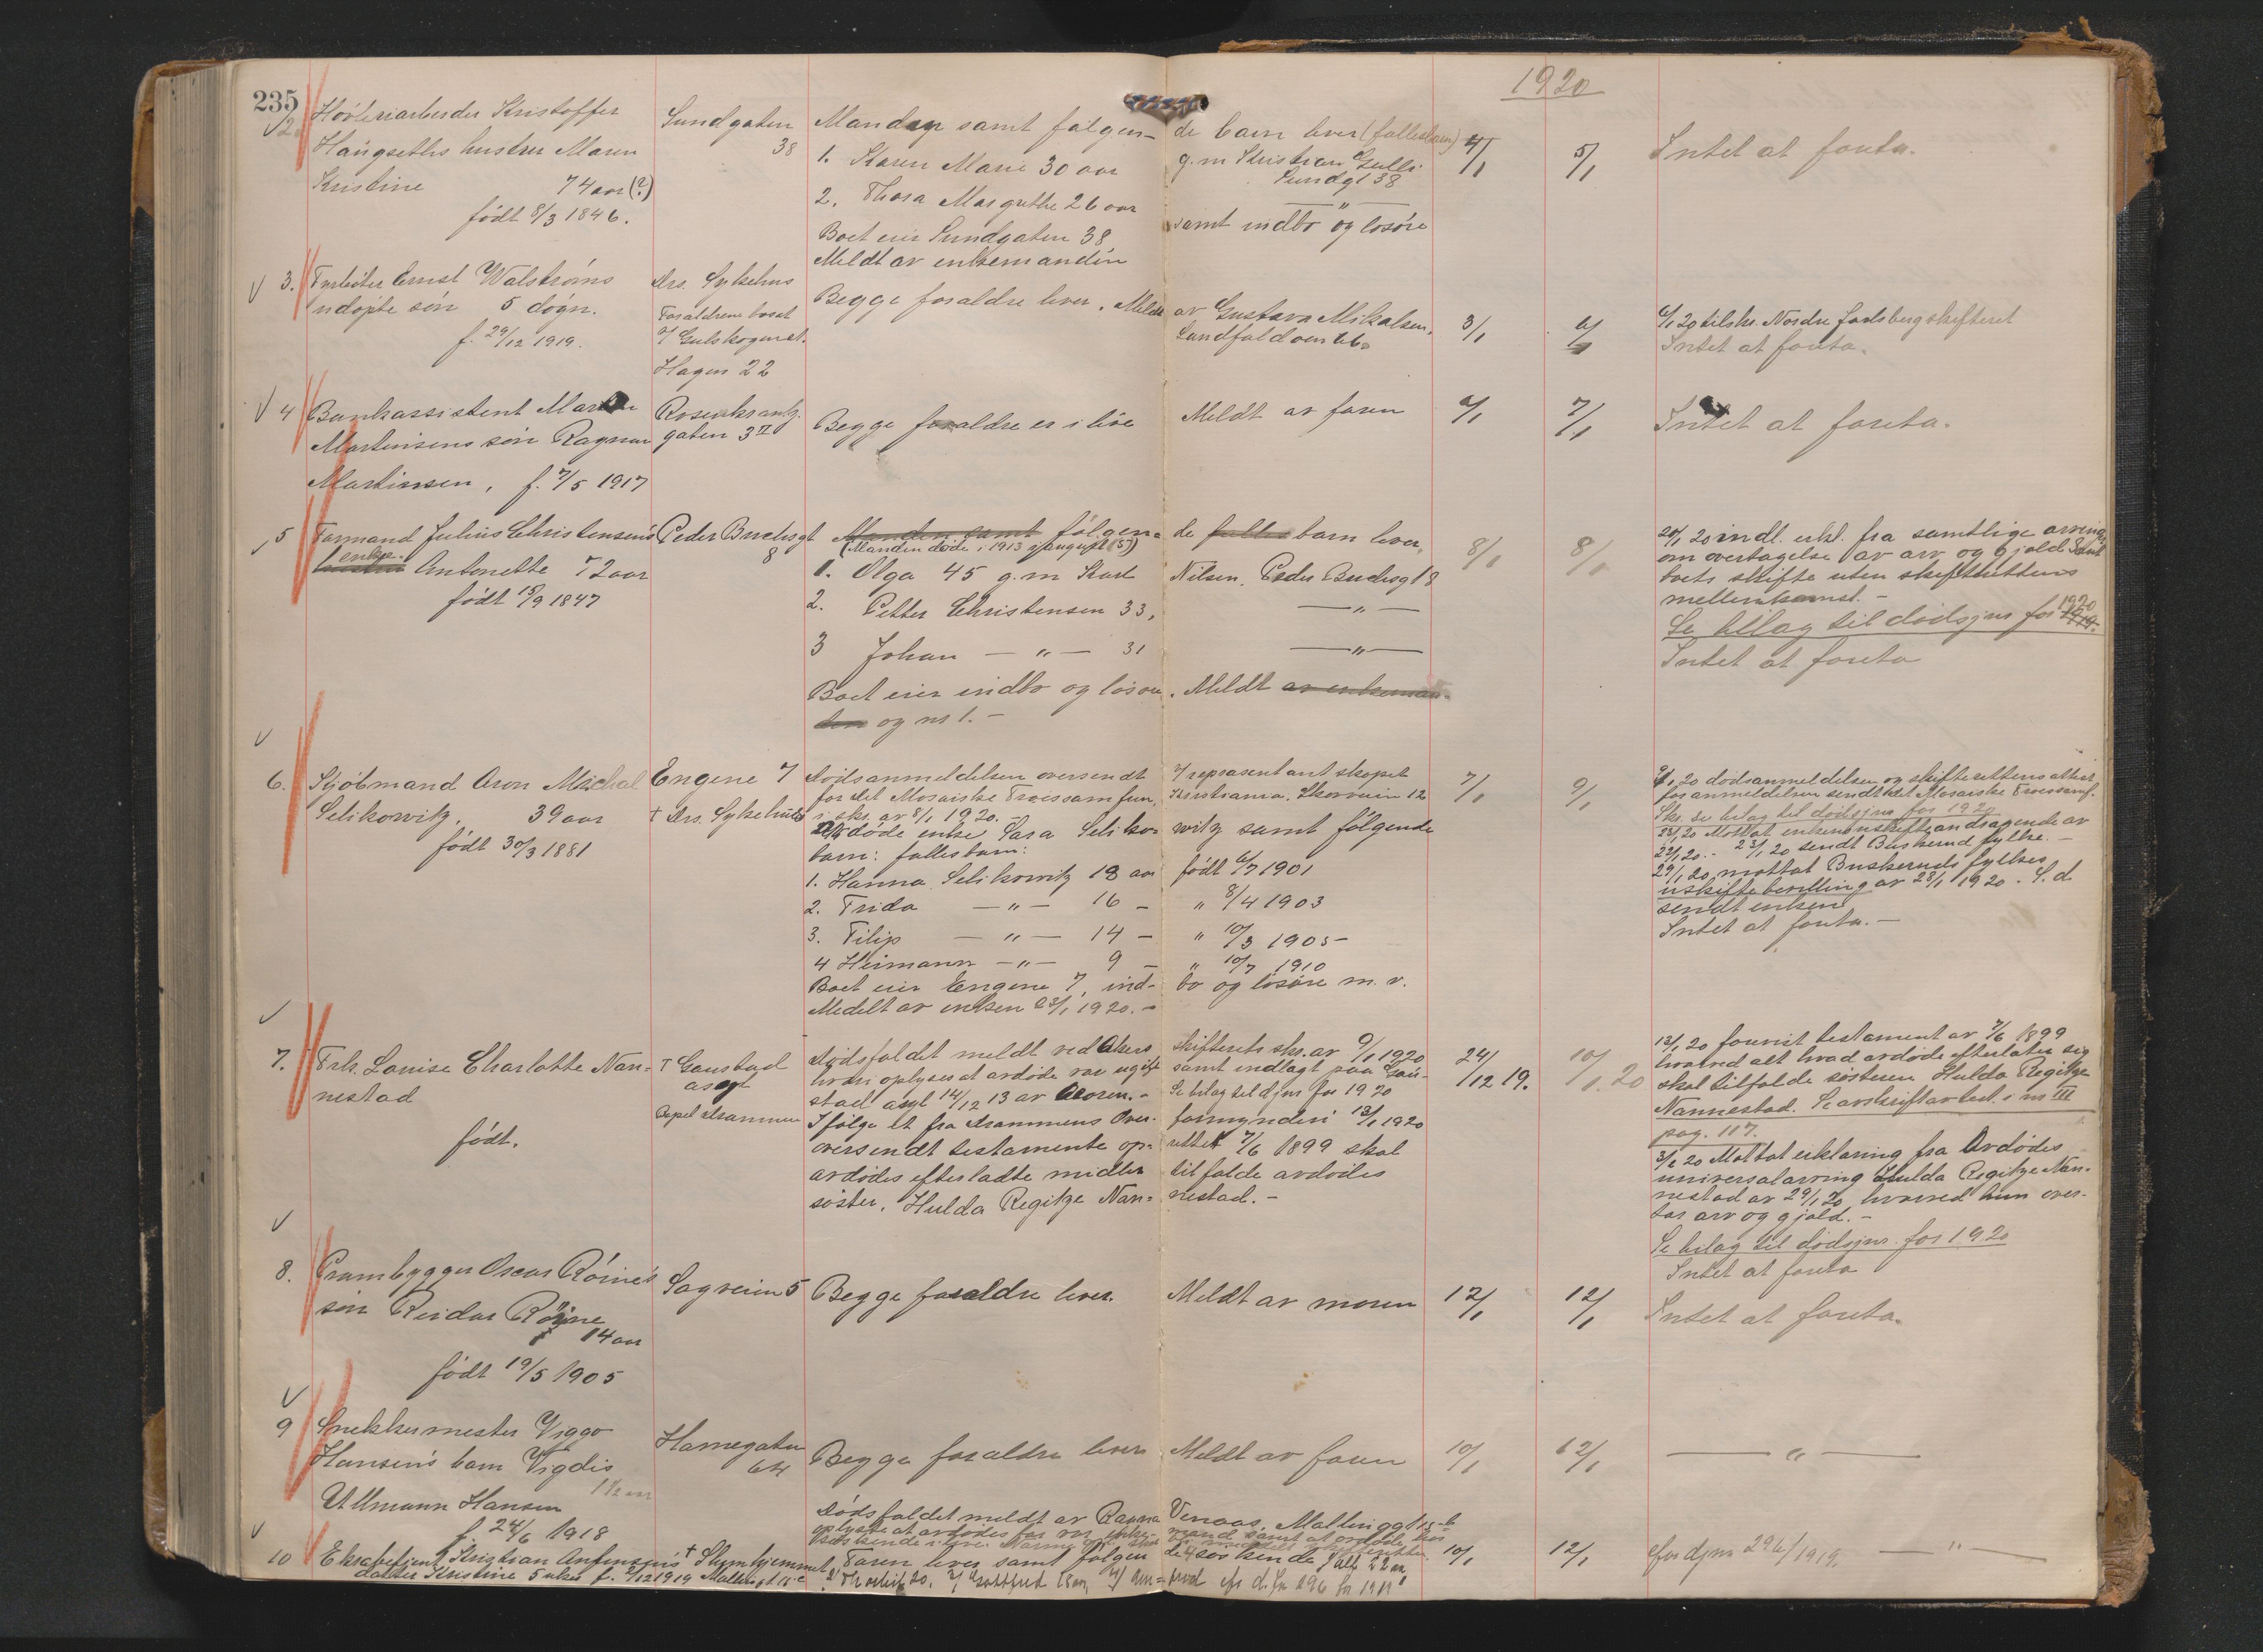 235
1920
2. Høvleriarbeider Kristoffer
Haugseths hustru Maren
Kristine 74 aar (?)
født 8/3 1846.
Sundgaten
38
Manden samt følgen-
de barn lever (fællesbarn)
1. Karen Marie 30 aar
g.m Kristian Gulli
Sundgt 38
2. Thora Margrethe 26 aar
— " —
Boet eier Sundgaten 38
samt indbo og løsøre
Meldt av enkemanden
4/1
5/1
Intet at foreta.
3. Fyrbøter Ernst Walstrøms
udøpte søn 5 døgn.
f. 29/12 1919.
Drs. Sykehus
Forældrene bosat
Hagen 22
Begge forældre lever. Meldt
av Gustava Mikalsen.
3/1
6/1
6/1 20 tilskr. Nordre Jarlsberg skifteret
Intet at foreta.
4 Bankassistent
Martinsens søn Ragnar
Martinsen, f. 7/5 1917
Rosenkrantz-
gaten 3 II
Begge forældre er i live
Meldt av faren
6/1
7/1
Intet at foreta.
5 Formand Julius Christensens
hustru enke Antonette 72 aar
født 15/9 1847
Peder Buchsgt
8
Manden samt følgen-
de fælles barn lever,
(Manden døde i 1913
1. Olga 45 g.m Karl
Nilsen, Peder Buchsgt 8
2. Petter Christensen 33,
— " —
3 Johan — " — 31
— " —
Boet eier indbo og løsøre. Meldt av enkeman-
den og nr 1. –
8/1
8/1
20/1 20 indl. erkl. fra samtlige arvinger
om overtagelse av arv og gjæld samt
boets skifte uten skifterettens
mellemkomst. –
Se bilag til dødsjur for 1919. 1920
Intet at foreta
6. Kjøbmand Aron Michal
Selikowitz, 39 aar
født 30/3 1881
Engene 7
† Drs. Sykehus
Dødsanmeldelsen oversendt
repræsentantskapet
for Det Mosaiske Troessamfun,
Kristiania, 12
i skr. av 8/1 1920. –
Avdøde enke Sara Seliko-
witz samt følgende
barn: fællesbarn:
1. Hanna Selikowitz 18 aar
født 6/7 1901
2. Frida — " — 16 –
" 8/4 1903
3. Filip — " — 14 –
" 10/3 1905 –
4 Heimann — " — 9 –
" 10/7 1910
Boet eier Engene 7, ind-
bo og løsøre m.v.
Medelt av enken 23/1 1920. –
7/1
9/1
9/1 20 dødsanmeldelsen og skifterettens attest
for anmeldelsen sendt Det Mosaiske Troessamf.
Skr. se bilag til dødsjur for 1920
23/1 20 Mottat enkens uskifteandragende av
22/1 20. – 23/1 20 sendt Buskerud fylke. –
29/1 20 mottat Buskeruds fylkes
uskiftebevilling av 28/1 1920. S.d.
sendt enken
Intet at foreta. –
7. Frk. Louise Charlotte Nan-
nestad
født.
† Gaustad
asyl
Drammen
Dødsfaldet meldt ved Akers
skifterets skr. av 9/1 1920
hvori oplyses at avdøde var ugift
samt indlagt paa Gau-
stad asyl 14/12 13 av –
Se bilag til djur for 1920
Ifølge et fra Drammens Over-
formynderi 13/1 1920
oversendt testamente op-
rettet 7/6 1899 skal
avdødes efterladte midler
tilfalde avdødes
søster, Hulda Regitze Nan-
nestad. –
24/12 19.
10/1 20
13/1 20 testament av 7/6 1899
hvorved alt hvad avdøde efterlater sig
skal tilfalde søsteren Hulda Regitze
Nannestad. Se avskrift av test. i nr III
pag. 117.
3/2 20 Mottat erklæring fra Avdødes
universalarving Hulda Regitze Nan-
nestad av 29/1 20, hvorved hun over-
tar arv og gjæld. –
Se bilag til dødsjur. for 1920
Intet at foreta
8. Prambygger Oscar Røine's
søn Reidar Røine
14 aar
født 19/5 1905
Sagveien 5
Begge forældre lever.
Meldt av moren
12/1
12/1
Intet at foreta.
9 Snekkermester Viggo
Hansens barn Vigdis
1 1/2 aar
Ullmann Hansen
f. 24/6 1918
Havnegaten
64
Begge forældre lever
Meldt av faren
10/1
12/1
— " —
10 Kristian
datter Kristine 5 uker f. 2/12 1919
Dødsfaldet meldt av Ragna
Faren lever samt følgen
de 4 søskende
10/1
12/1
cfr djur 296/1919. — " —